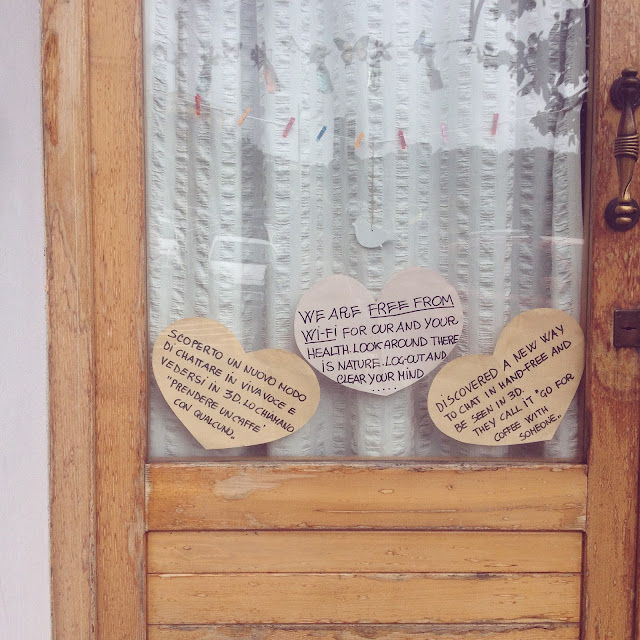 SCOPERTO UN NUOVO MODO
DI CHATTARE IN VIVAVOCE E
VEDERSI IN 3D. LO CHIAMANO
"PRENDERE UN CAFFE'
CON QUALCUNO.
WE ARE FREE FROM
WI-FI FOR OUR AND YOUR
HEALTH. LOOK AROUND THERE
IS NATURE. LOG-OUT AND
CLEAR YOUR MIND
.......
DISCOVERED A NEW WAY
TO CHAT IN HAND-FREE AND
BE SEEN IN 3D.
THEY CALL IT "GO FOR
COFFEE WITH
SOMEONE.